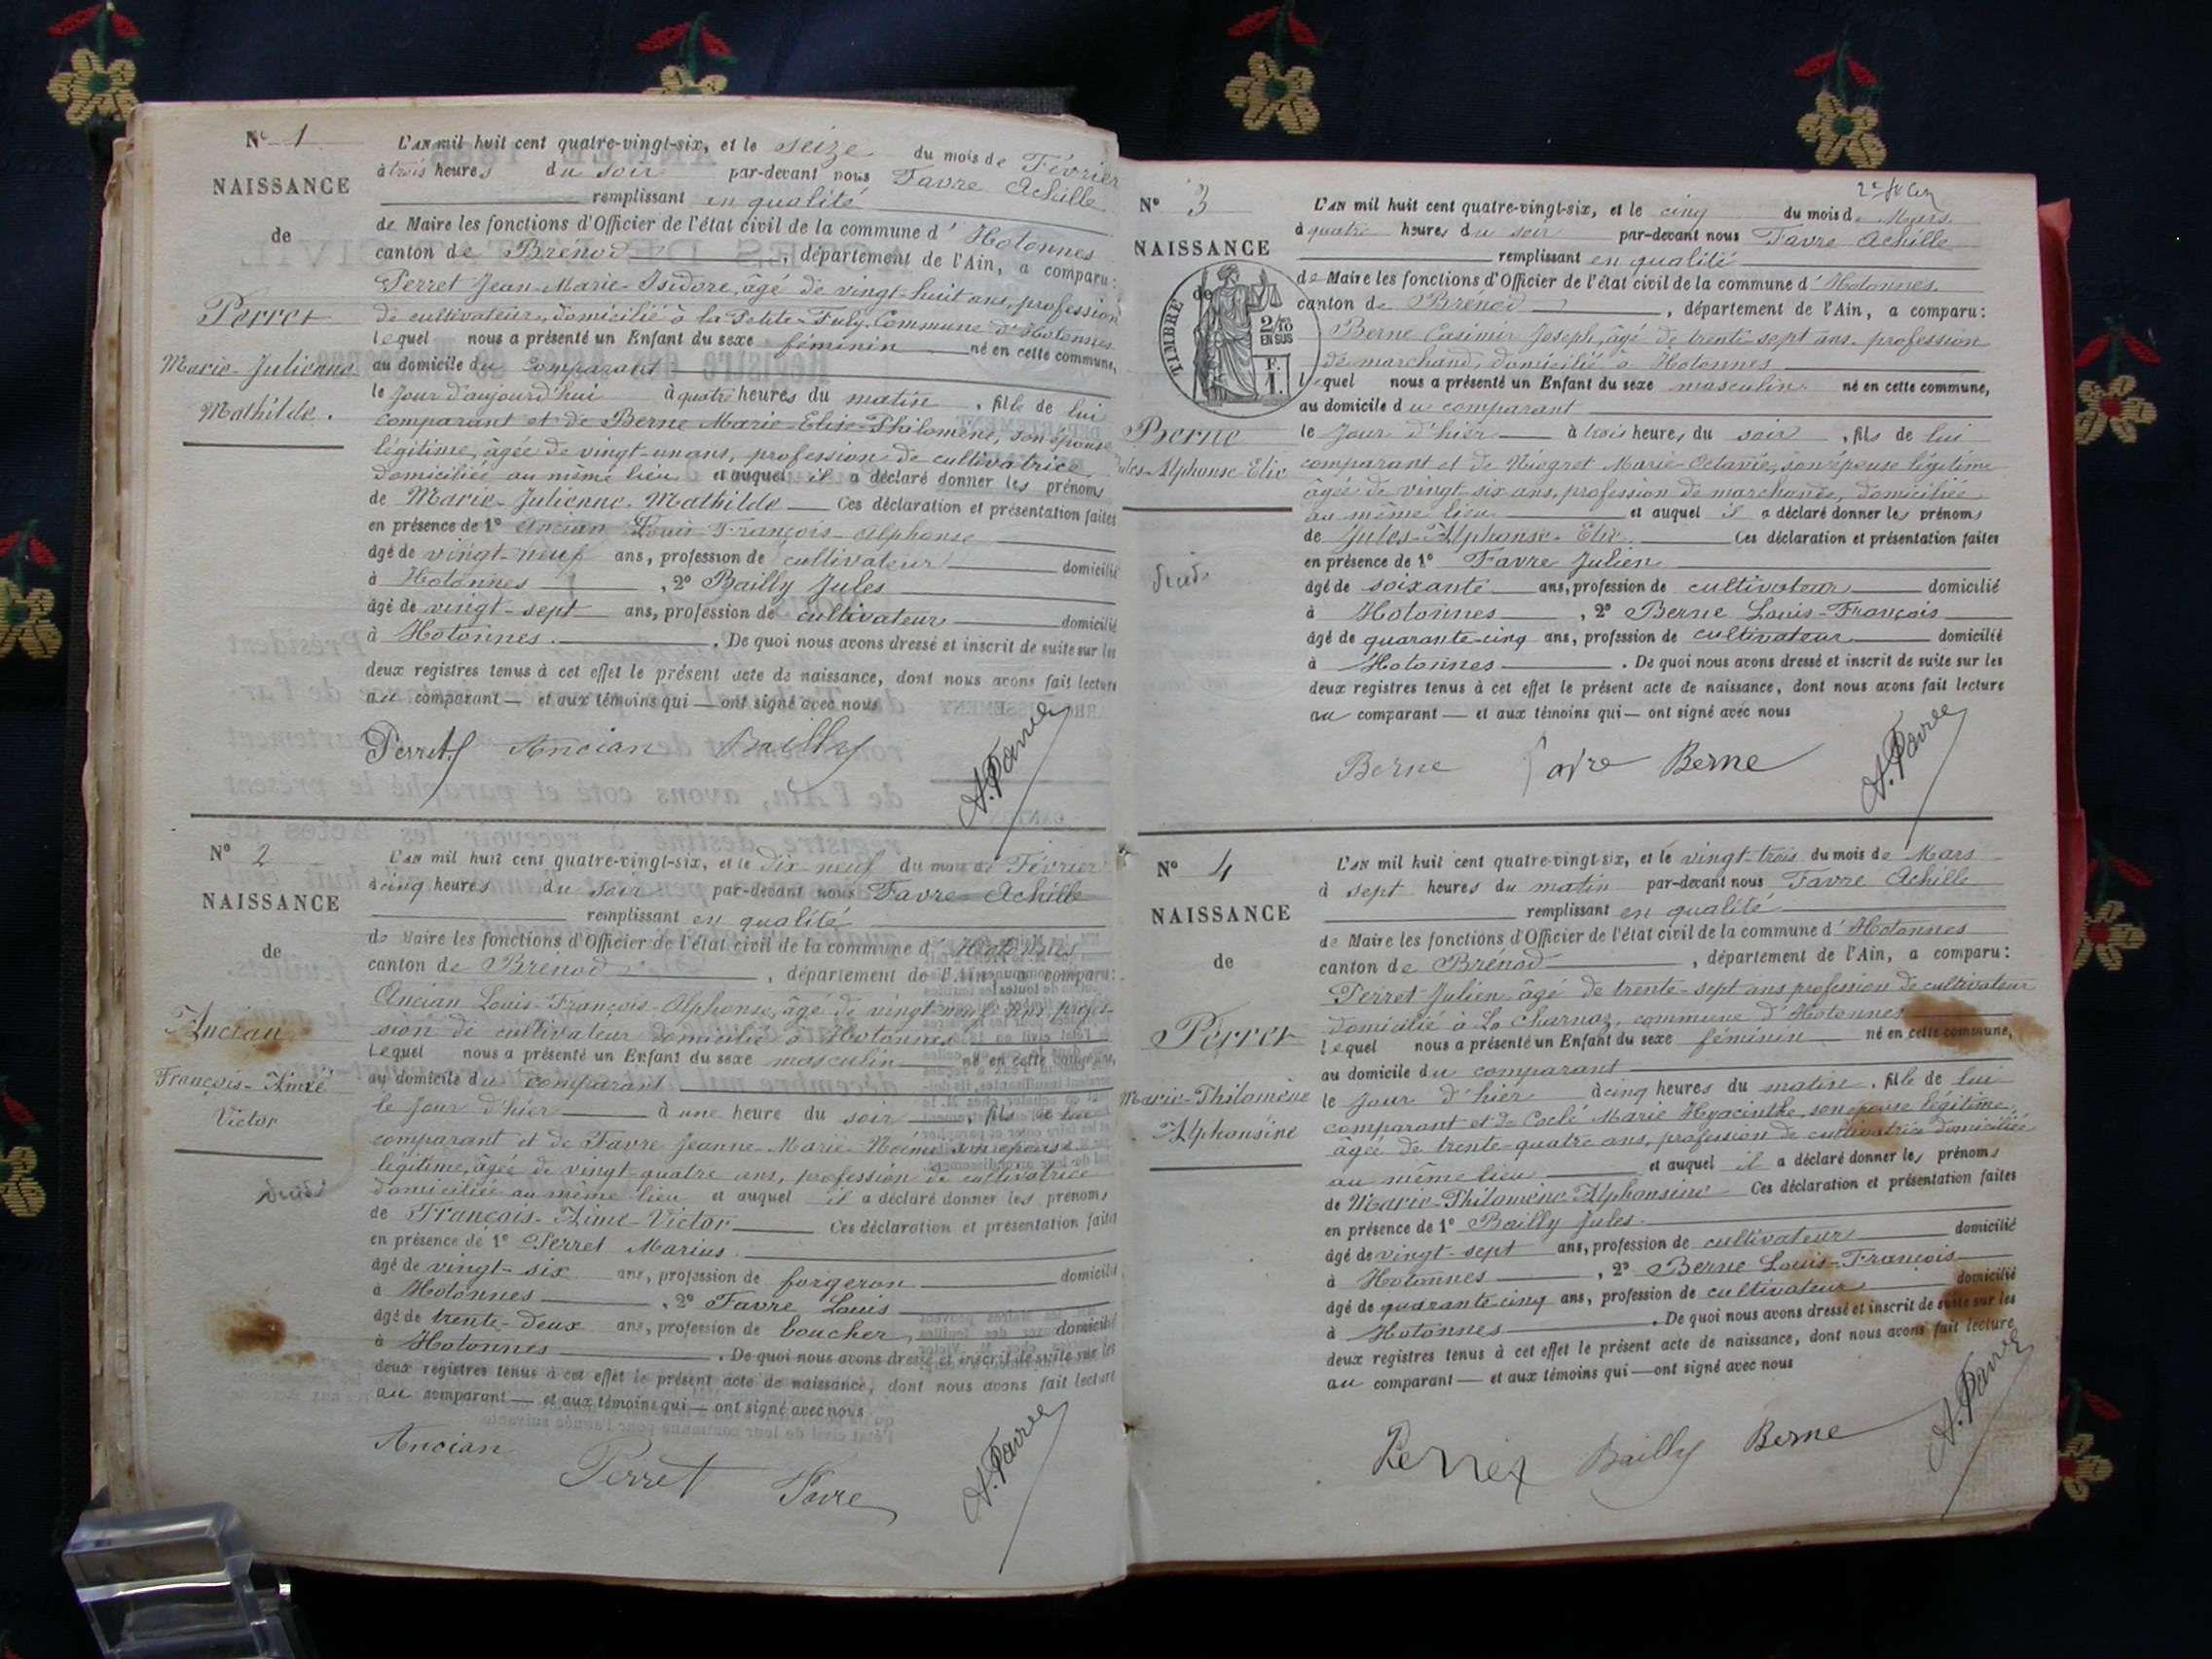 N° 1
NAISSANCE
de
Perret
Marie-Julienne
Mathilde.
L'AN mil huit cent quatre-vingt-six, et le seize du mois de Février
à trois heures du soir par-devant nous Favre Achille
remplissant en qualité
de Maire les fonctions d'Officier de l'état civil de la commune d'Hotonnes
canton de Brénod, département de l'Ain, a comparu:
Perret Jean-Marie-Isidore, âgé de vingt-huit ans, profession
de cultivateur, domicilié à la Petite- Commune d'Hotonnes
lequel nous a présenté un Enfant du sexe féminin né en cette commune,
au domicile du comparant
le jour d'aujourd'hui à quatre heures du matin, fille de lui
comparant et de Berne Marie-Elise-Philomène, son épouse
légitime, âgée de vingt-un ans, profession de cultivatrice
domiciliée au même lieu et auquel il a déclaré donner les prénoms
de Marie-Julienne-Mathilde Ces déclaration et présentation faites
en présence de 1° Ancian Louis-François-Alphonse
âgé de vingt-neuf ans, profession de cultivateur domicilié
à Hotonnes, 2° Bailly Jules
âgé de vingt-sept ans, profession de cultivateur domicilié
à Hotonnes. De quoi nous avons dressé et inscrit de suite sur les
deux registres tenus à cet effet le présent acte de naissance, dont nous avons fait lecture
au comparant et aux témoins qui ont signé avec nous
Perret Ancian Bailly A. Favre
N° 2
NAISSANCE
de
Ancian
François-Aimé
Victor
L'AN mil huit cent quatre-vingt-six, et le dix-neuf du mois de Février
à cinq heures du soir par-devant nous Favre Achille
remplissant en qualité
de Maire les fonctions d'Officier de l'état civil de la commune d'Hotonnes
canton de Brénod, département de l'Ain, a comparu:
Ancian Louis-François-Alphonse, âgé de vingt neuf ans, profes-
sion de cultivateur domicilié à Hotonnes
lequel nous a présenté un Enfant du sexe masculin né en cette commune,
au domicile du comparant
le jour d'hier à une heure du soir, fils de lui
comparant et de Favre Jeanne-Marie-Noémie son épouse
légitime, âgée de vingt-quatre ans, profession de cultivatrice
domiciliée au même lieu et auquel il a déclaré donner les prénoms
de François-Aimé-Victor Ces déclaration et présentation faites
en présence de 1° Perret Marius
âgé de vingt-six ans, profession de forgeron domicilié
à Hotonnes, 2° Favre Louis
âgé de trente-deux ans, profession de boucher, domicilié
à Hotonnes. De quoi nous avons dressé et inscrit de suite sur les
deux registres tenus à cet effet le présent acte de naissance, dont nous avons fait lecture
au comparant et aux témoins qui ont signé avec nous
Ancian Perret Favre A. Favre
N° 3
NAISSANCE
de
TIMBRE
2/10
EN SUS
F.
1.
Berne
Jules-Alphonse-Elie
L'AN mil huit cent quatre-vingt-six, et le cinq du mois de Mars
à quatre heures du soir par-devant nous Favre Achille
remplissant en qualité
de Maire les fonctions d'Officier de l'état civil de la commune d'Hotonnes
canton de Brénod, département de l'Ain, a comparu:
Berne Casimir Joseph, âgé de trente-sept ans, profession
de marchand, domicilié à Hotonnes
lequel nous a présenté un Enfant du sexe masculin né en cette commune,
au domicile du comparant
le jour d'hier à trois heures du soir, fils de lui
comparant et de Niogret Marie-Octavie, son épouse légitime
âgée de vingt-six ans, profession de marchande, domiciliée
au même lieu et auquel il a déclaré donner les prénoms
de Jules-Alphonse-Elie. Ces déclaration et présentation faites
en présence de 1° Favre Julien
âgé de soixante ans, profession de cultivateur domicilié
à Hotonnes, 2° Berne Louis-François
âgé de quarante-cinq ans, profession de cultivateur domicilié
à Hotonnes. De quoi nous avons dressé et inscrit de suite sur les
deux registres tenus à cet effet le présent acte de naissance, dont nous avons fait lecture
au comparant et aux témoins qui ont signé avec nous
Berne Favre Berne A. Favre
N° 4
NAISSANCE
de
Perret
Marie-Philomène
Alphonsine
L'AN mil huit cent quatre-vingt-six, et le vingt-trois du mois de Mars
à sept heures du matin par-devant nous Favre Achille
remplissant en qualité
de Maire les fonctions d'Officier de l'état civil de la commune d'Hotonnes
canton de Brénod, département de l'Ain, a comparu:
Perret Julien âgé de trente-sept ans profession de cultivateur
domicilié à La Charnaz, commune d'Hotonnes
lequel nous a présenté un Enfant du sexe féminin né en cette commune,
au domicile du comparant
le jour d'hier à cinq heures du matin, fille de lui
comparant et de Marie Hyacinthe, son épouse légitime,
âgée de trente-quatre ans, profession de cultivatrice domiciliée
au même lieu et auquel il a déclaré donner les prénoms
de Marie-Philomène Alphonsine Ces déclaration et présentation faites
en présence de 1° Bailly Jules
âgé de vingt-sept ans, profession de cultivateur domicilié
à Hotonnes, 2° Berne Louis-François
âgé de quarante-cinq ans, profession de cultivateur domicilié
à Hotonnes. De quoi nous avons dressé et inscrit de suite sur les
deux registres tenus à cet effet le présent acte de naissance, dont nous avons fait lecture
au comparant et aux témoins qui ont signé avec nous
Perret Bailly Berne A. Favre